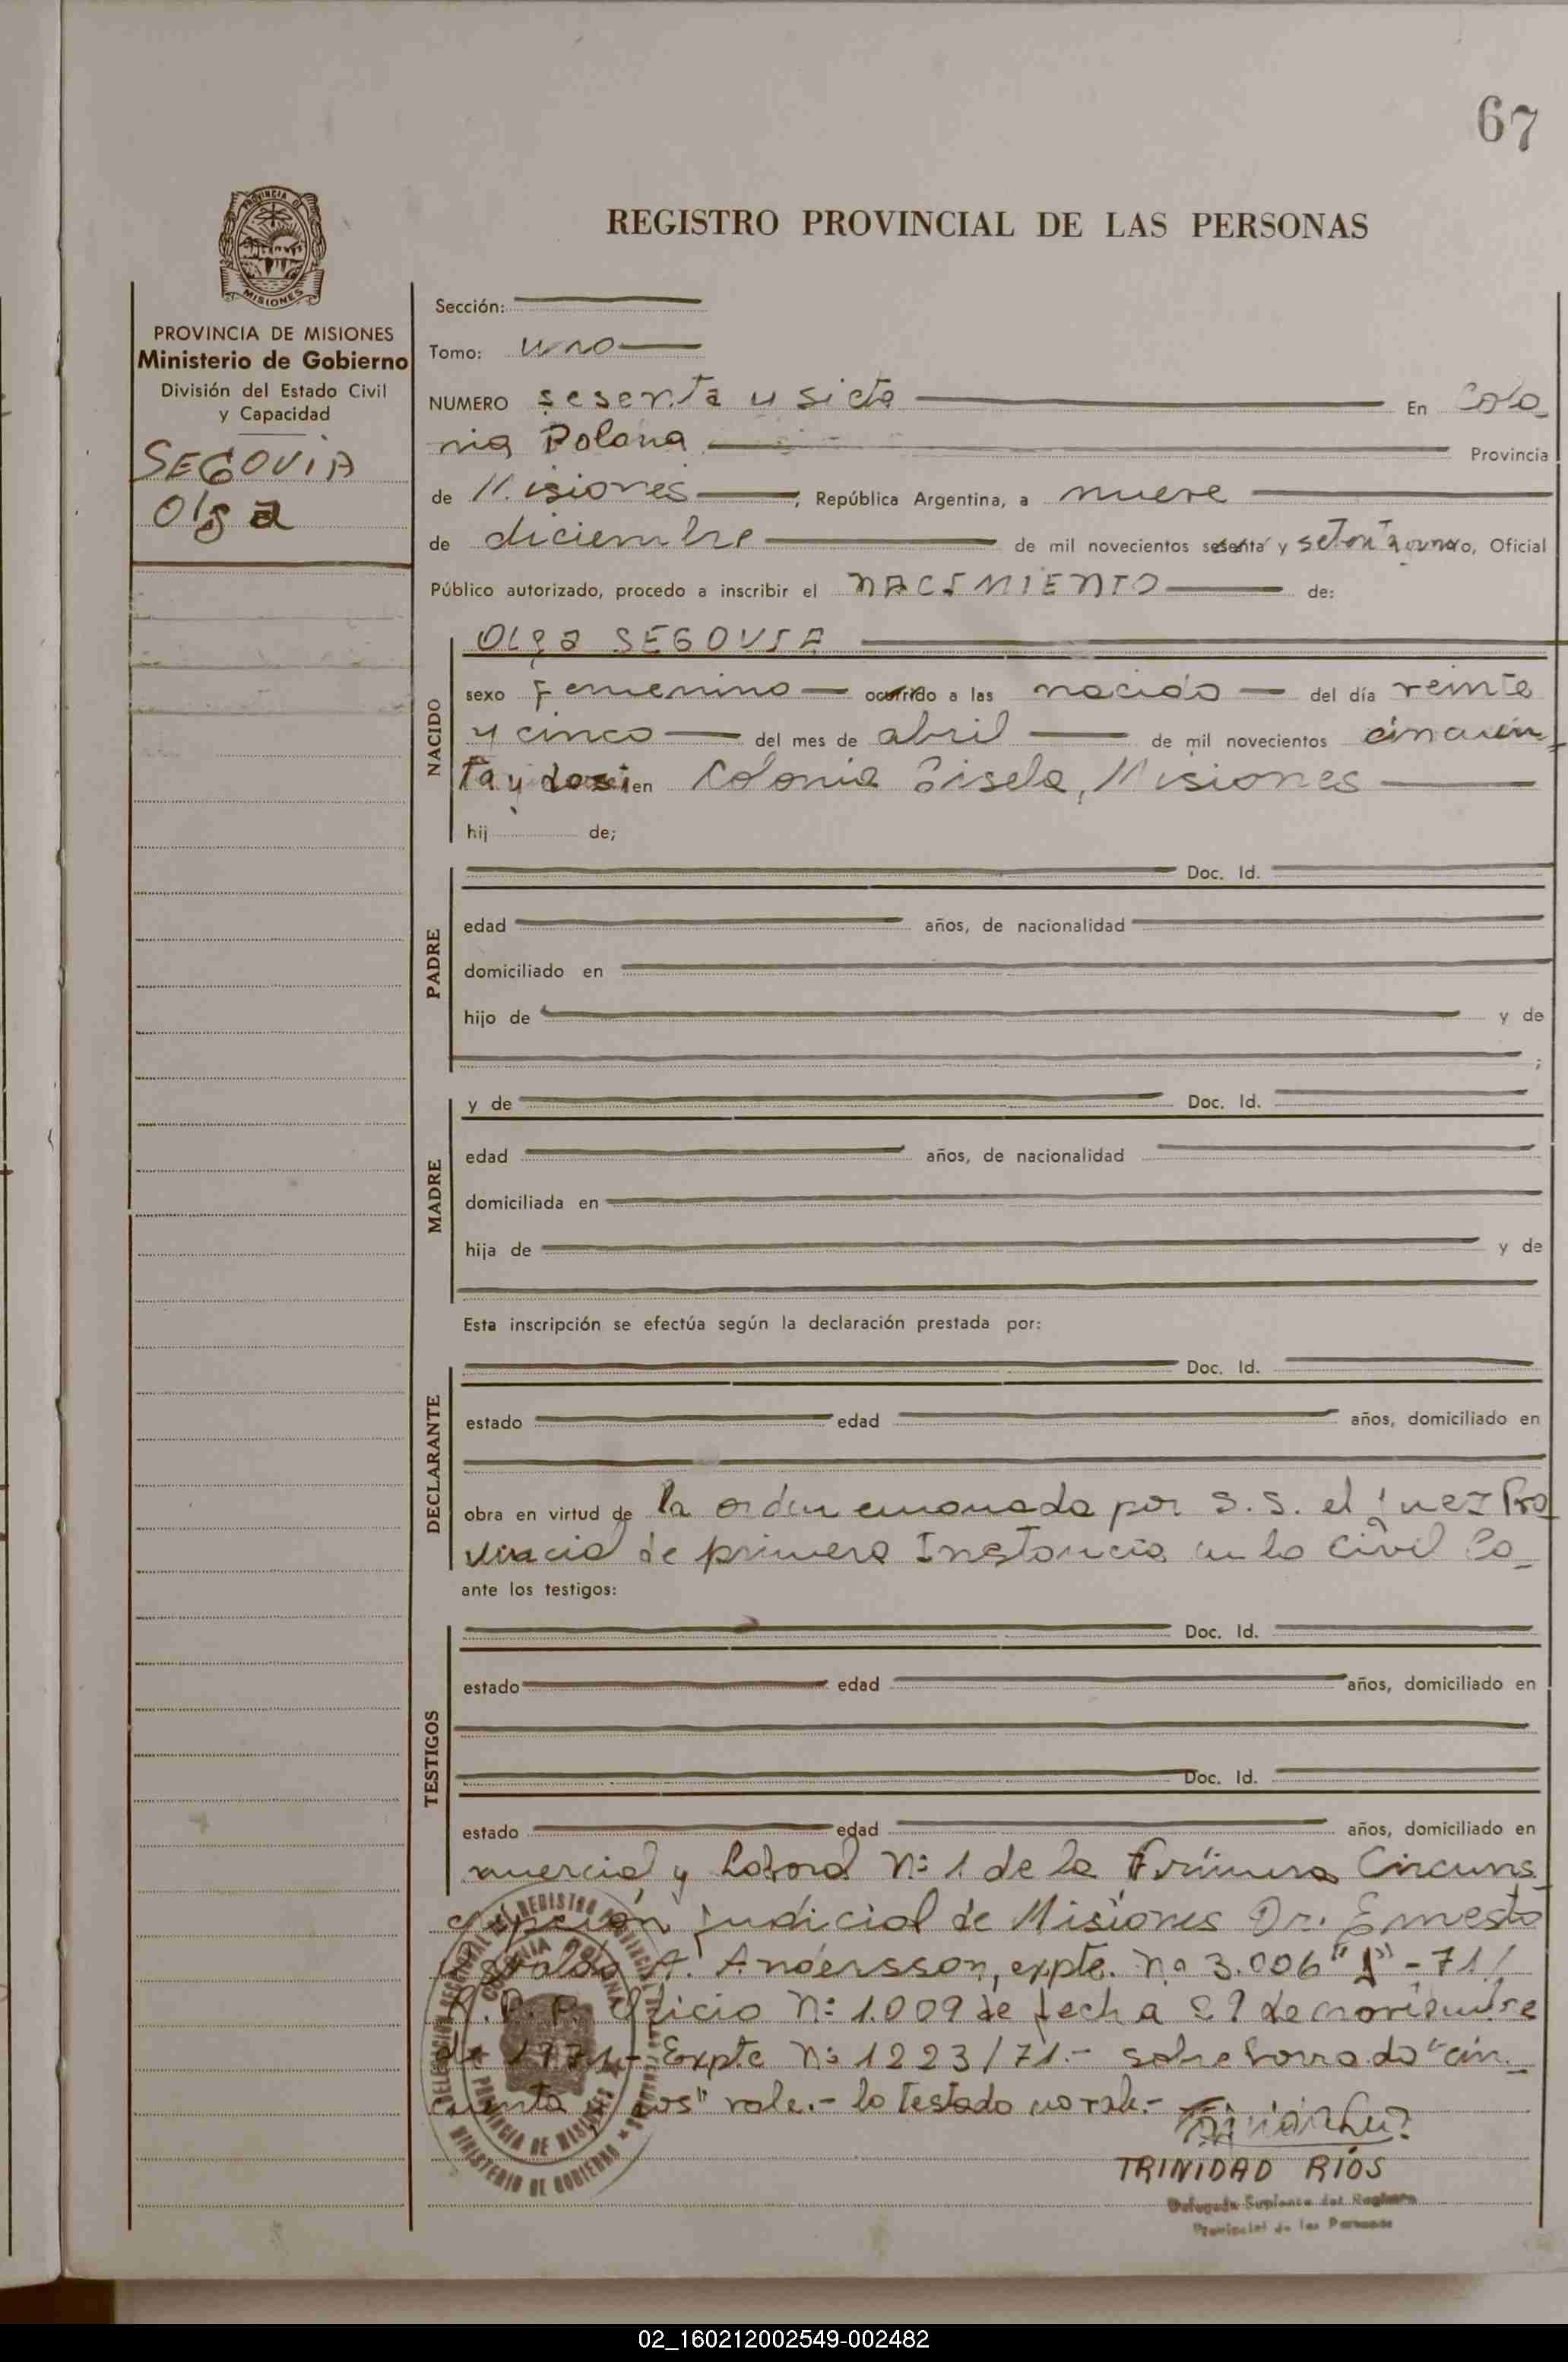 67
PROVINCIA DE
MISIONES
REGISTRO PROVINCIAL DE LAS PERSONAS
PROVINCIA DE MISIONES
Ministerio de Gobierno
División del Estado Civil
y Capacidad
SEGOVIA
Olga
Sección:
Tomo: uno
NUMERO sesenta y siete En Colo
nia Polana Provincia
de Misiones, República Argentina, a nueve
de diciembre de mil novecientos sesenta y setenta y uno, Oficial
Público autorizado, procedo a inscribir el NACIMIENTO de:
NACIDO
Olga SEGOVIA
sexo femenino ocurrido a las nacido del día veinte
y cinco del mes de abril de mil novecientos cincuen
ta y dos en Colonia Gisela, Misiones
hij de;
PADRE
Doc. Id.
edad años, de nacionalidad
domiciliado en
hijo de y de
;
MADRE
y de Doc. Id.
edad años, de nacionalidad
domiciliada en
hija de y de
Esta inscripción se efectúa según la declaración prestada por:
DECLARANTE
Doc. Id.
estado edad años, domiciliado en
obra en virtud de la orden emanada por S.S. el juez Pro
vincial de primera Instancia en lo Civil Co_
ante los testigos:
TESTIGOS
Doc. Id.
estado edad años, domiciliado en
Doc. Id.
estado edad años, domiciliado en
mercial y Laboral Nº 1 de la Primera Circuns_
cripción judicial de Misiones Dr. Ernesto
Osvaldo A. Andersson, expte. nº 3.006 -71/
R.P.P. Oficio Nº 1.009 de fecha 29 de noviembre
de 1971.- Expte Nº 1223/71.- sobre borrado "cin_
cuenta y dos" vale.- lo testado no vale.-
TRINIDAD RIOS
Delegada Suplente del Registro
Provincial de las Personas
COLONIA POLANA
PROVINCIA DE MISIONES
MINISTERIO DE GOBIERNO
02_160212002549-002482